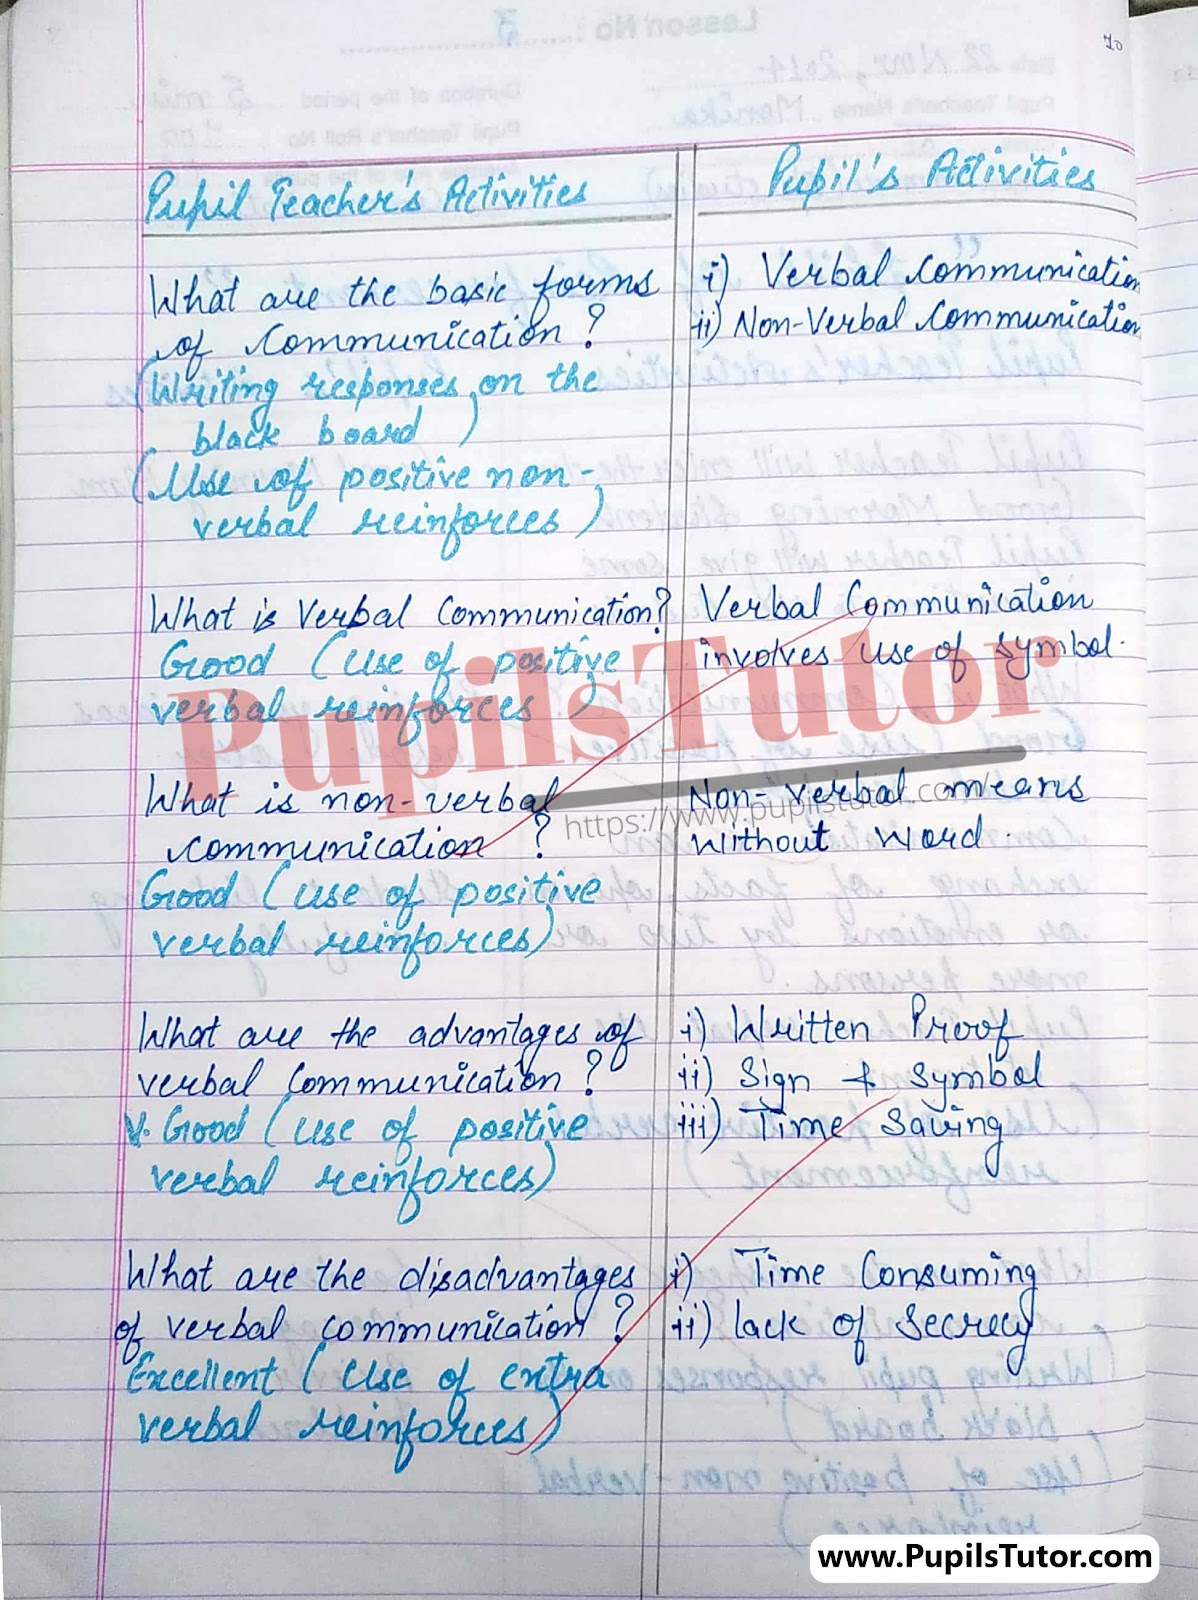 10
Pupil Teacher's Activities
Pupil's Activities
What are the basic forms
of communication ?
(Writing responses on the
black board )
(Use of positive non-
verbal reinforces )
i) Verbal Communication
ii) Non-Verbal Communication
What is Verbal Communication?
Good (Use of positive
verbal reinforces )
Verbal Communication
involves use of symbol.
What is non-verbal
communication ?
Good (Use of positive
verbal reinforces)
Non-verbal means
without word.
What are the advantages of
verbal communication ?
V. Good (Use of positive
verbal reinforces)
i) Written Proof
ii) Sign & Symbol
iii) Time Saving
What are the disadvantages
of verbal communication ?
Excellent (Use of extra
verbal reinforces)
i) Time Consuming
ii) lack of secrecy
PupilsTutor
https://www.pupilstutor.com/
www.PupilsTutor.com